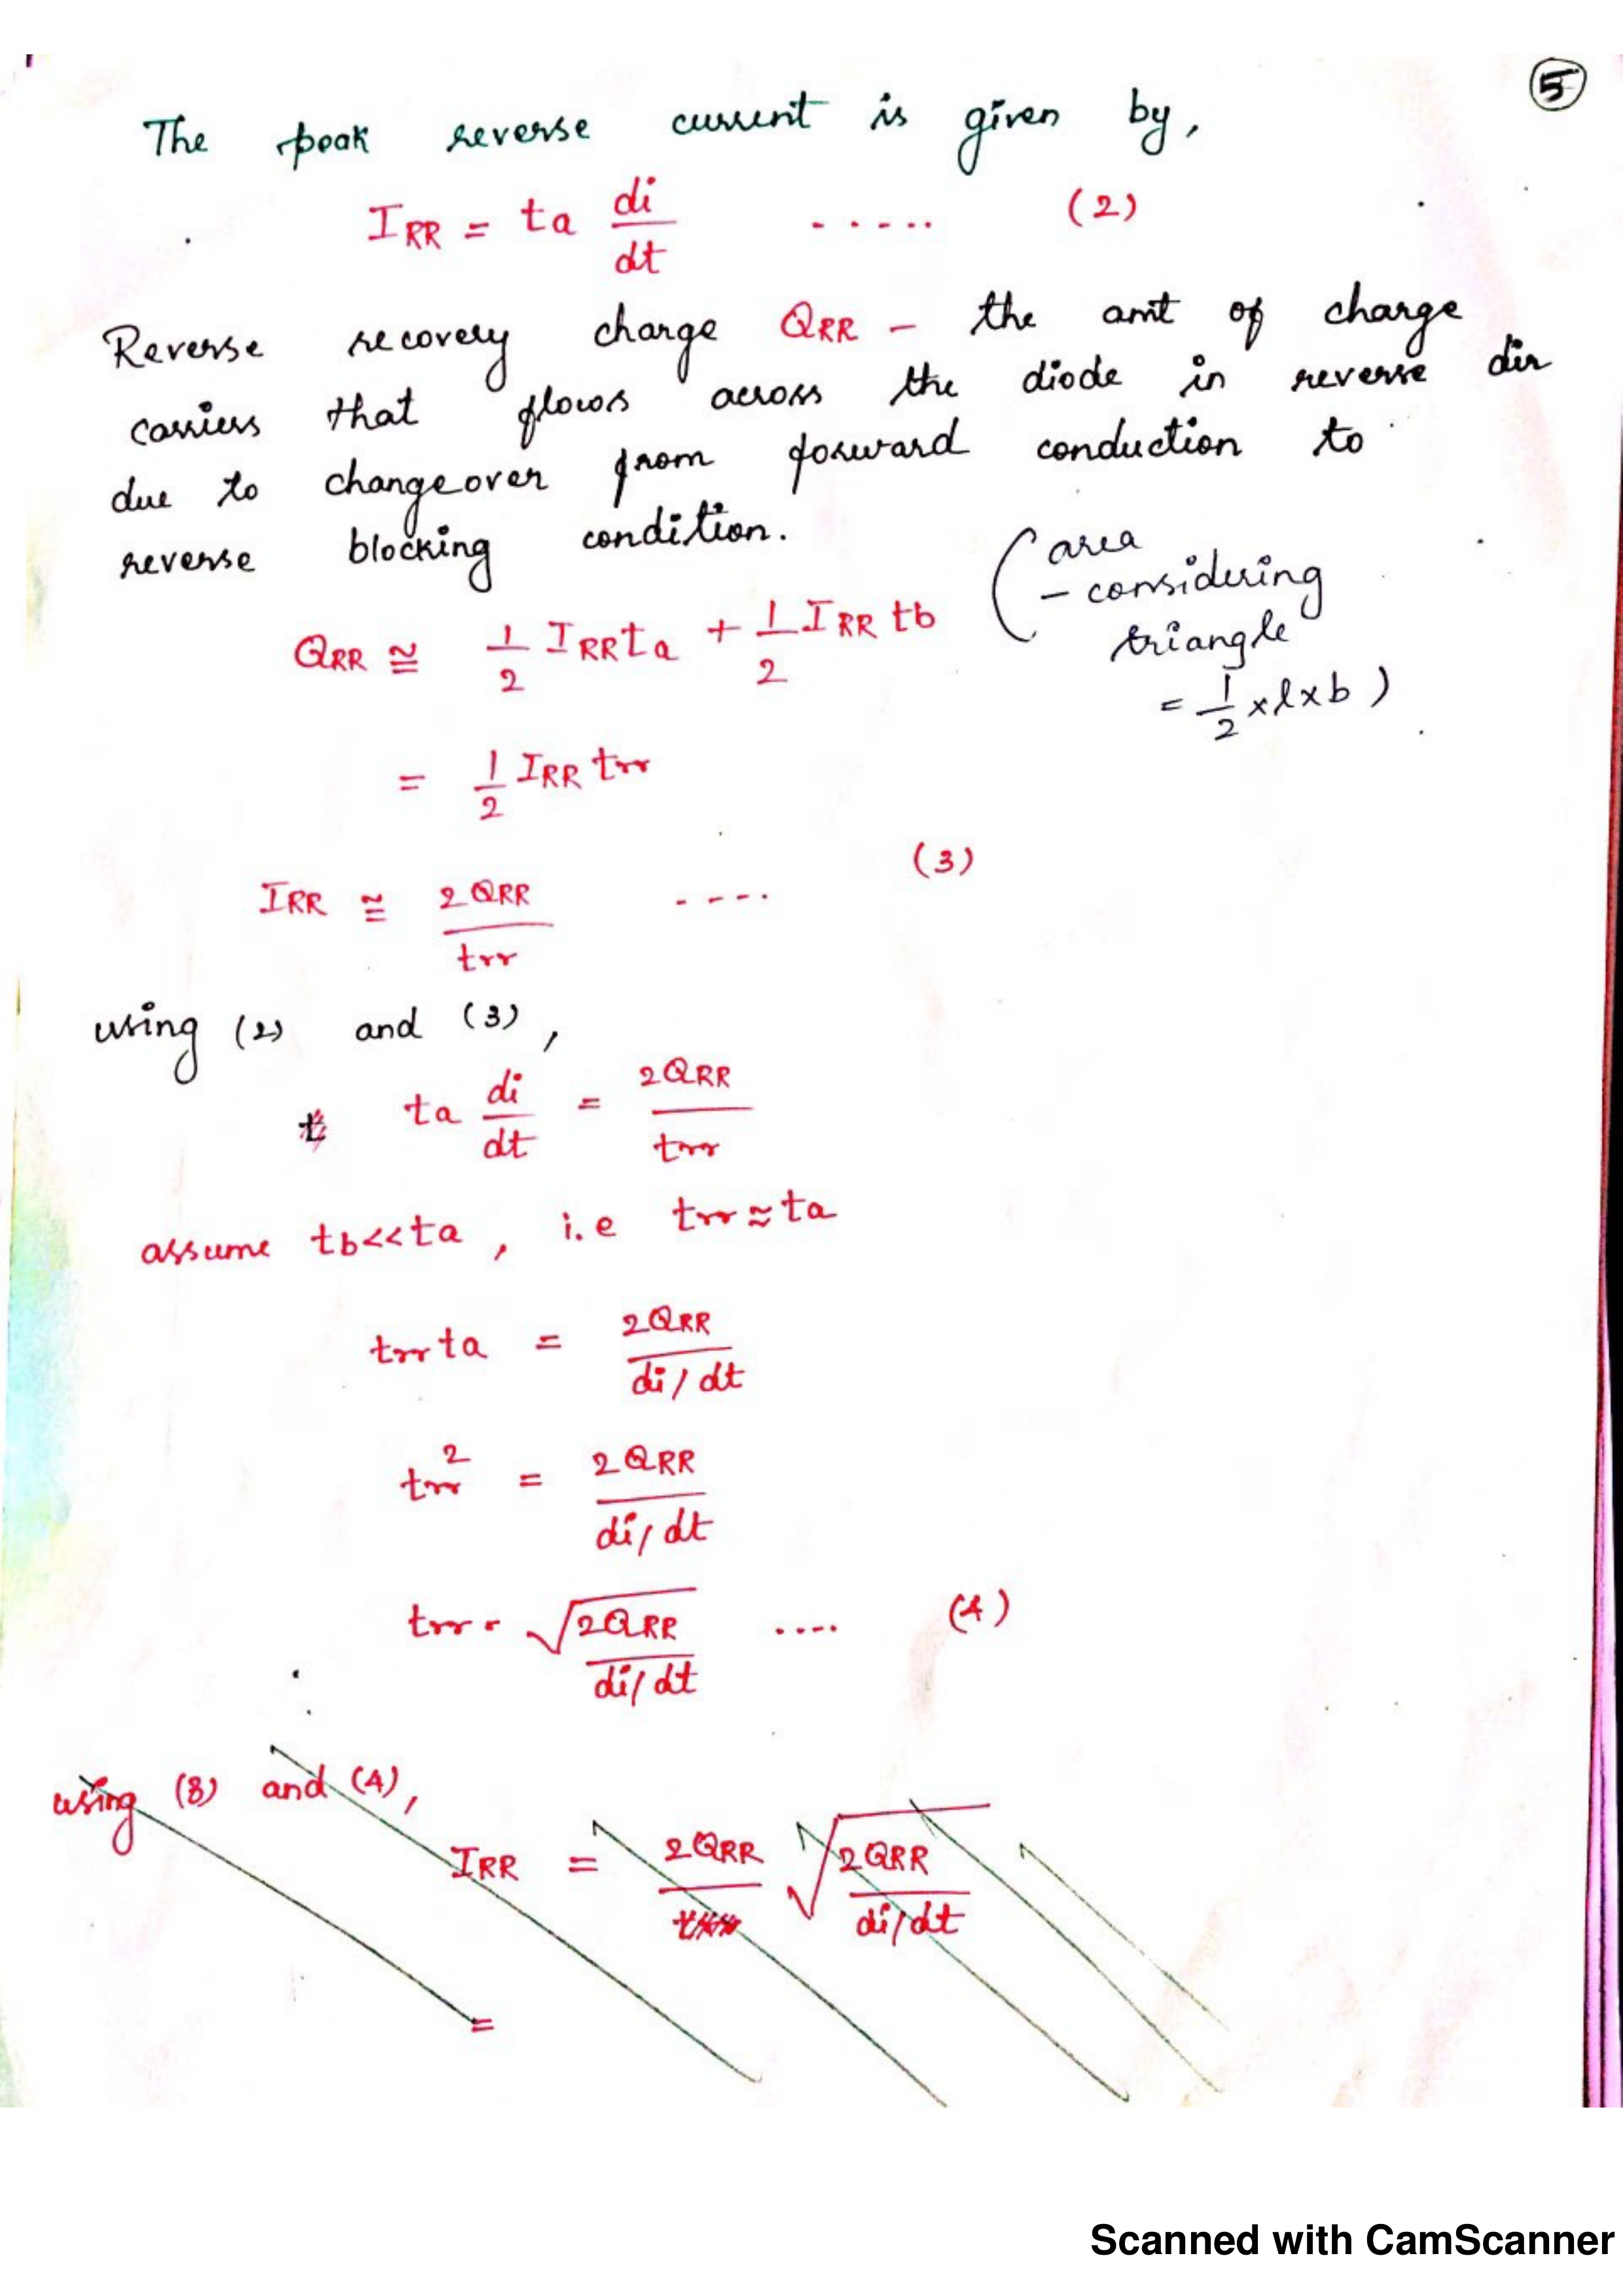 5
The peak reverse current is given by,
I_RR = ta di/dt ..... (2)
Reverse recovery charge Q_RR – the amt of charge
carriers that flows across the diode in reverse dir
due to changeover from forward conduction to
reverse blocking condition.
Q_RR ≅ 1/2 I_RR ta + 1/2 I_RR tb
(area
– considering
triangle
= 1/2 × l × b)
= 1/2 I_RR trr
I_RR ≅ 2Q_RR / trr .... (3)
using (2) and (3),
t ta di/dt = 2Q_RR / trr
assume tb<<ta, i.e trr ≈ ta
trr ta = 2Q_RR / di/dt
trr² = 2Q_RR / di/dt
trr = √(2Q_RR / di/dt) .... (4)
using (3) and (4),
I_RR = 2Q_RR / trr √(2Q_RR / di/dt)
=
Scanned with CamScanner